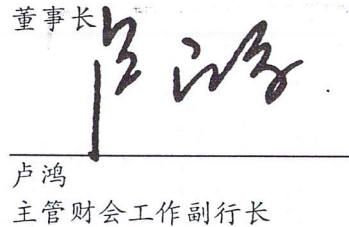 董事长
卢鸿
卢鸿
主管财会工作副行长